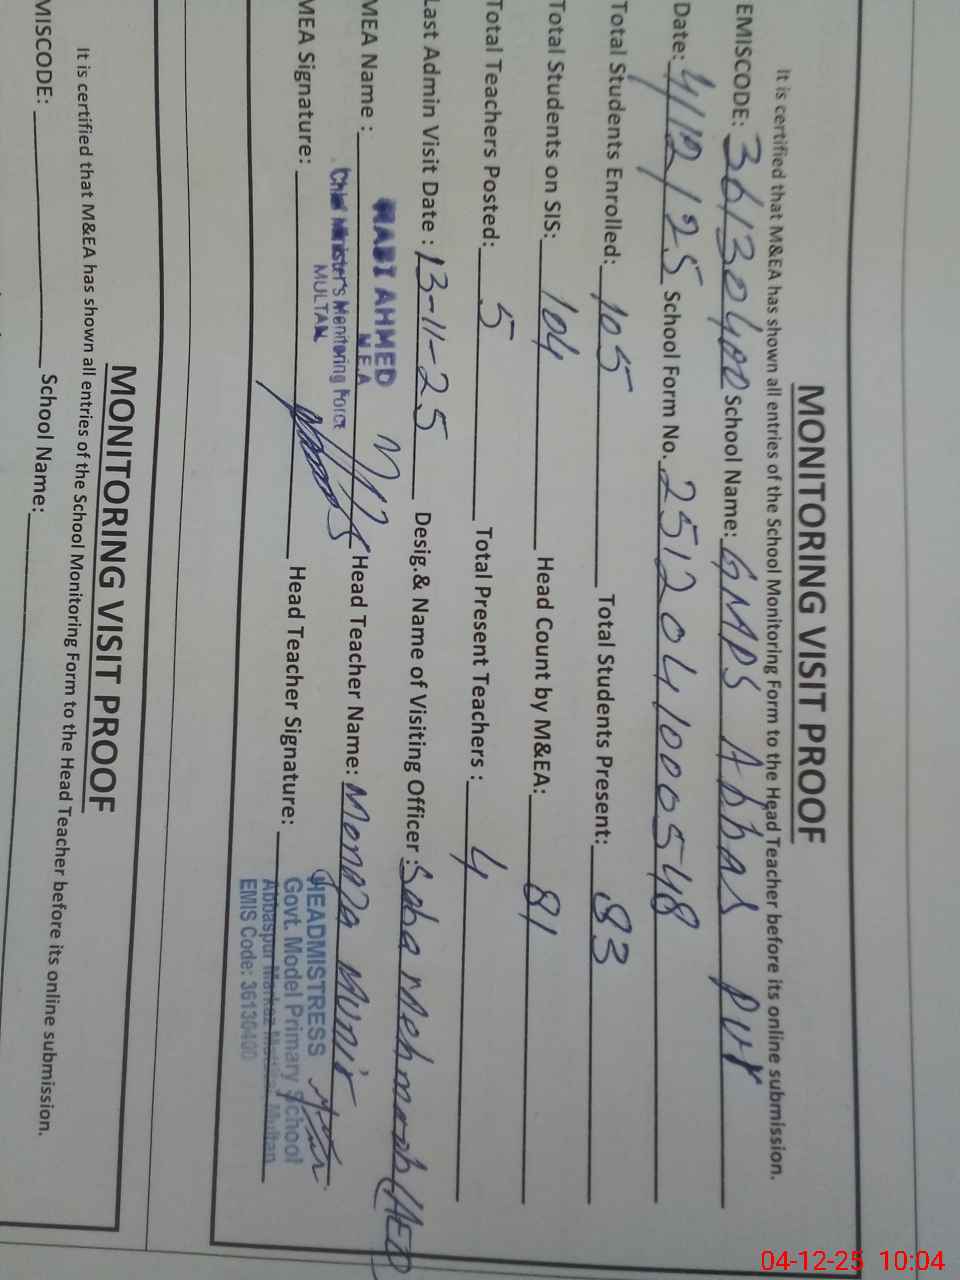 MONITORING VISIT PROOF
It is certified that M&EA has shown all entries of the School Monitoring Form to the Head Teacher before its online submission.
EMISCODE: 36130400 School Name: GMPS Abbas pur
Date: 4/12/25 School Form No. 2512041000548
Total Students Enrolled: 105 Total Students Present: 83
Total Students on SIS: 104 Head Count by M&EA: 81
Total Teachers Posted: 5 Total Present Teachers : 4
Last Admin Visit Date : 13-11-25 Desig.& Name of Visiting Officer : Saba Mehmood (AEO)
MEA Name : AHMED Head Teacher Name: Munir
M.E.A
Chief Minister's Monitoring Force
MULTAN
MEA Signature: Head Teacher Signature:
HEADMISTRESS
Govt. Model Primary School
Abbaspur Markaz Multan
EMIS Code: 36130400
MONITORING VISIT PROOF
It is certified that M&EA has shown all entries of the School Monitoring Form to the Head Teacher before its online submission.
MISCODE: School Name:
04-12-25 10:04